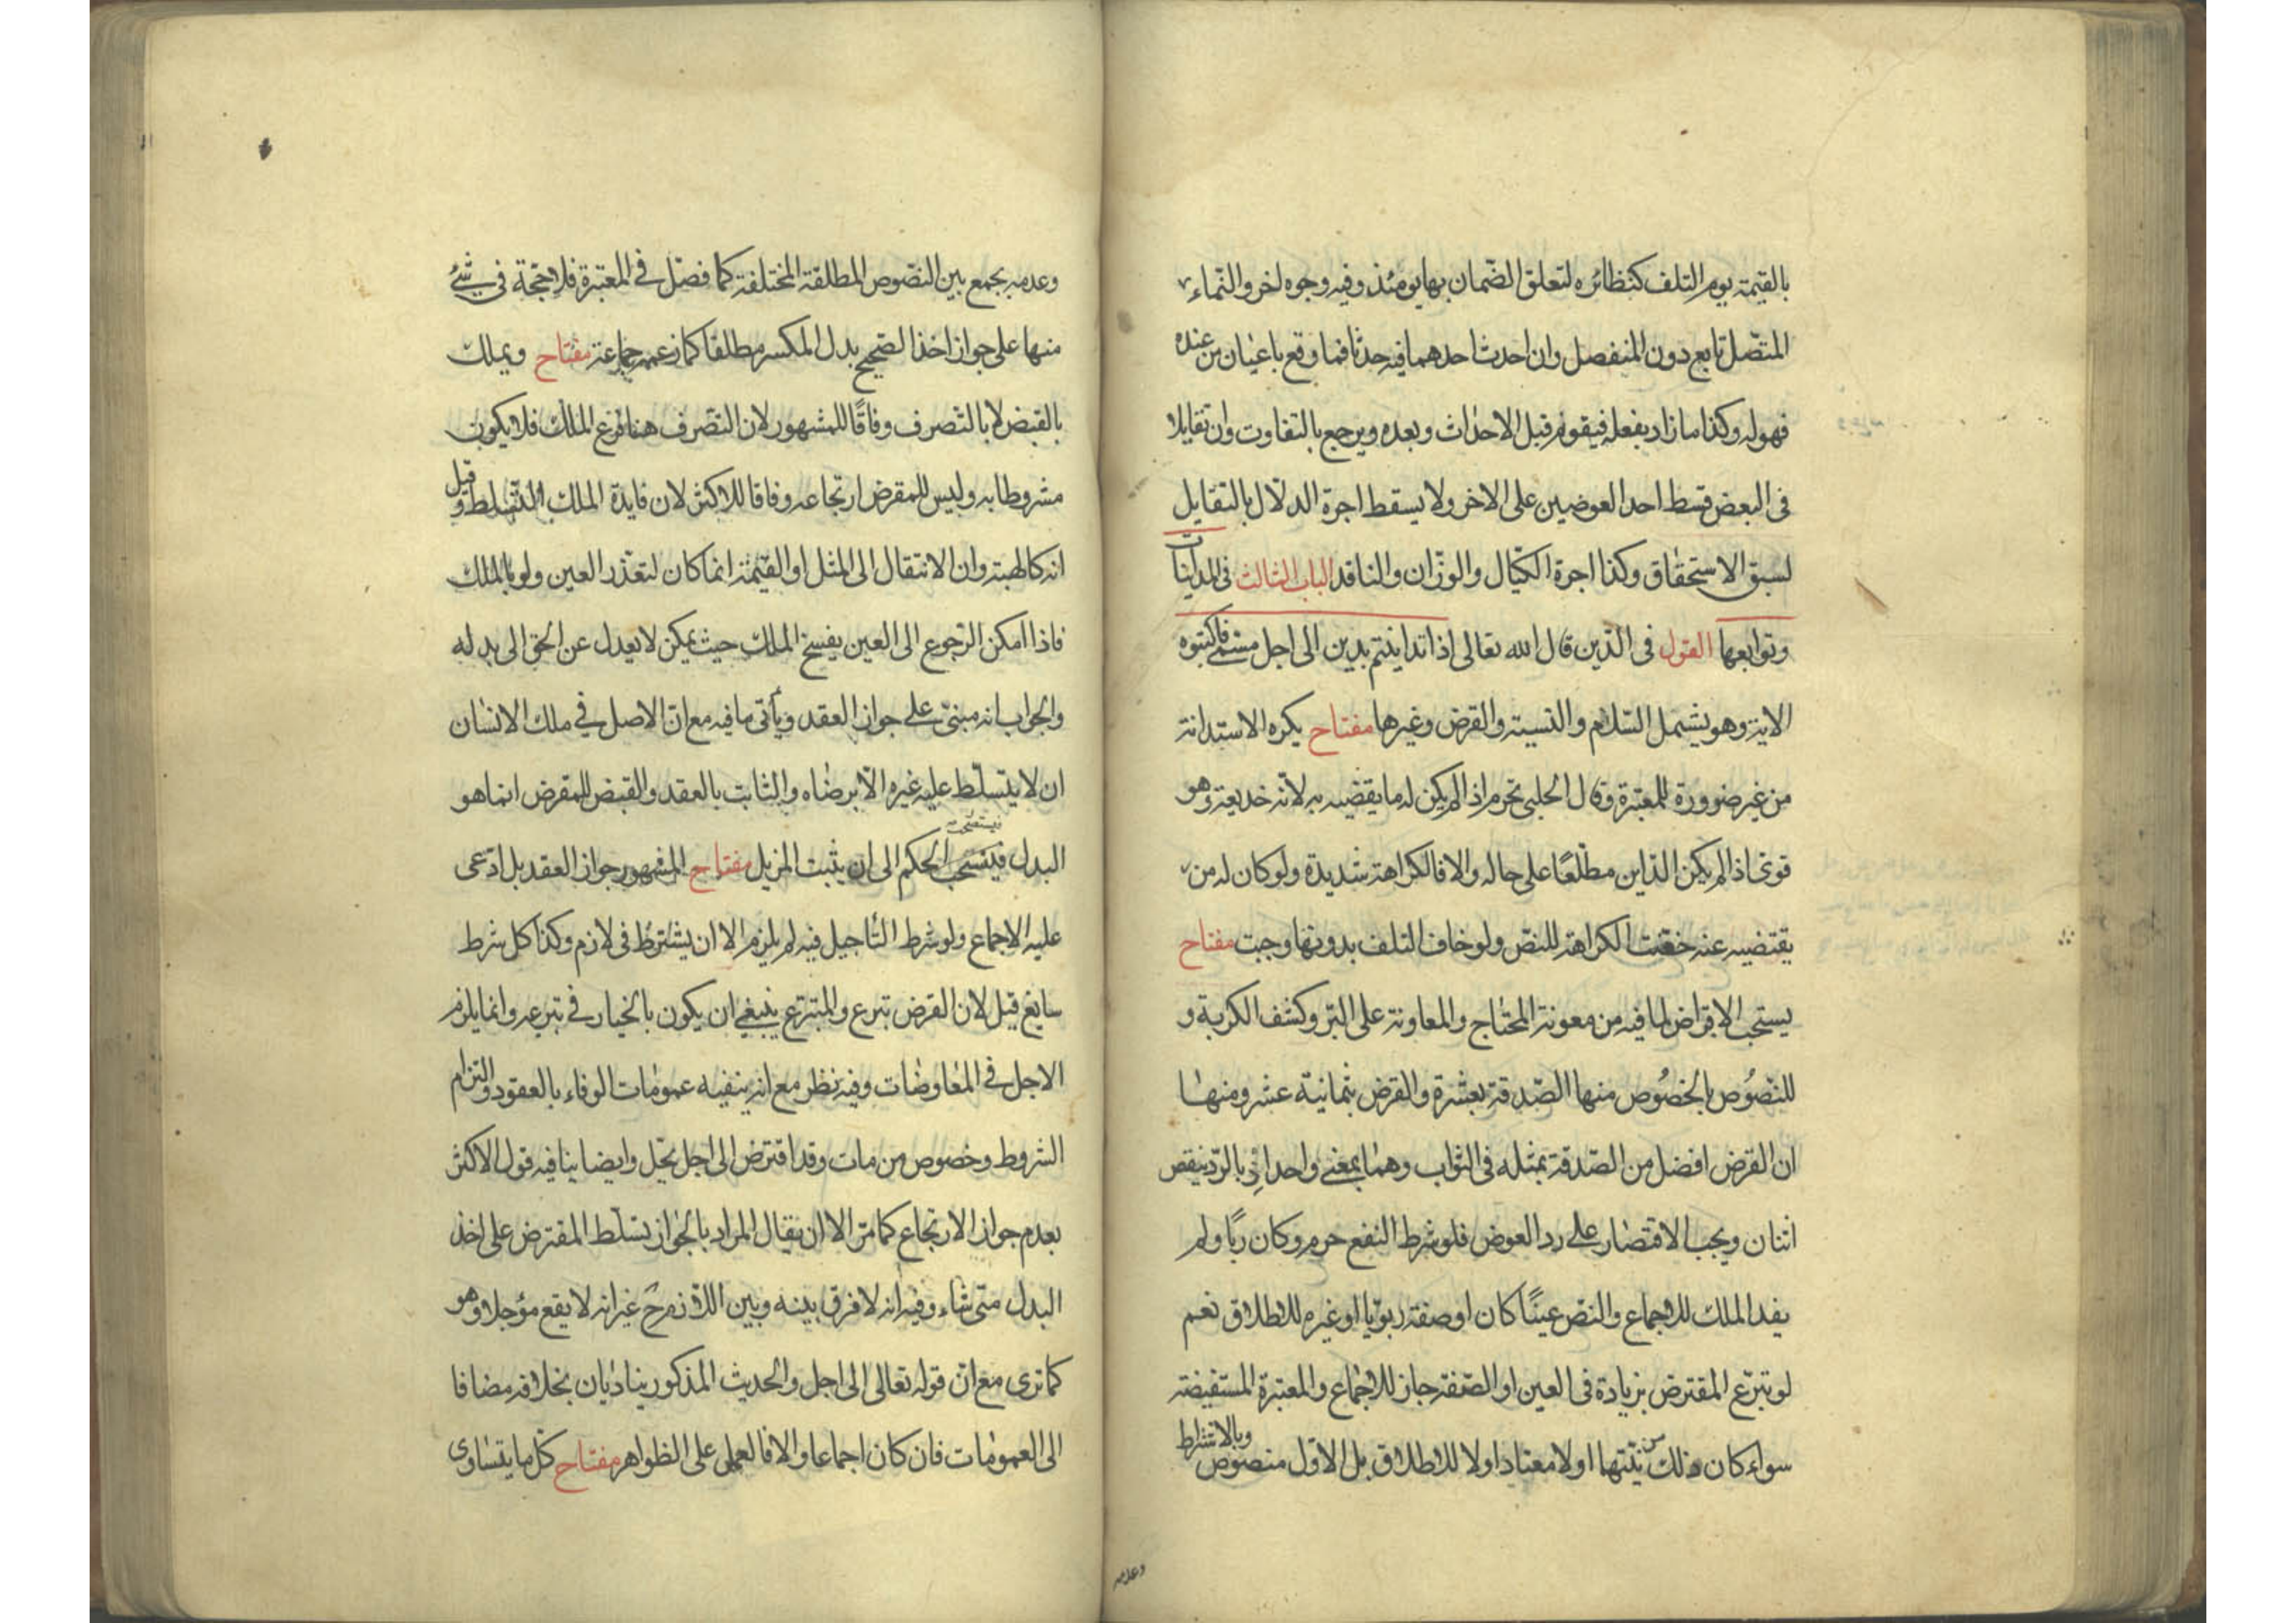 بالقيمة يوم التلف كنظائره لتعلق الضمان بها يومئذ وفيه وجوه اخر والنماء
المتّصل تابع دون المنفصل وان احدث احدهما فيه حدثا فما وقع باعيان من عنده
فهو له وكذا ما زاد بفعله فيقوم قبل الاحداث وبعده ويرجع بالتفاوت وان تقايلا
فى البعض قسط احد العوضين على الاخر ولا يسقط اجرة الدلّال بالتقايل
لسبق الاستحقاق وكذا اجرة الكيّال والوزّان والناقد الباب الثالث فى المداينات
وتوابعها القول فى الدّين قال الله تعالى اذا تداينتم بدين الى اجل مسمّى فاكتبوه
الاية وهو يشمل السّلم والنسية والقرض وغيرها مفتاح يكره الاستدانة
من غير ضرورة للمعتبرة وقال الحلبى تحرم اذا لم يكن له ما يقضيه به لانّه خديعة وهو
قوىّ اذا لم يكن الدّاين مطّلعًا على حاله والا فالكراهة شديدة ولو كان له من
يقتضيه عنه خفّت الكراهة للنصّ ولو خاف التلف بدونها وجبت مفتاح
يستحب الاقراض لما فيه من معونة المحتاج والمعاونة على البرّ وكشف الكربة و
للنّصُوص بالخصُوص منها الصّدقة بعشرة والقرض بثمانية عشر ومنها
ان القرض افضل من الصّدقة بمثله فى الثواب وهما بمعنى واحد اذ بالردّ ينقص
اثنان ويجب الاقتصار على رد العوض فلو شرط النفع حرم وكان ربًا ولم
يفد الملك للاجماع والنصّ عينًا كان او صفة ربويّا او غيره للاطلاق نعم
لو تبرّع المقترض بزيادة فى العين او الصّفة جاز للاجماع والمعتبرة المستفيضة
سواء كان ذلك من نيّتها اولا معتادا اولا للاطلاق بل الاوّل منصوص وبالاشتراط
وعدمه
وعدمه يجمع بين النصّوص المطلقة المختلفة كما فصّل في المعتبرة فلا حجّة فى شئ
منها على جواز اخذ الصّحيح بدل المكسر مطلقا كما زعمه جماعة مفتاح ويملك
بالقبض لا بالتّصرف وفاقًا للمشهور لان التصّرف هنا فرع الملك فلا يكون
مشروطا به وليس للمقرض ارتجاعه وفاقا للاكثر لان فايدة الملك التّسلط وقيل
انه كالهبة وان الانتقال الى المثل او القيمة انما كان لتعذّر العين ولو بالملك
فاذا امكن الرّجوع الى العين يفسخ الملك حيث يمكن لا يعدل عن الحق الى بدله
والجواب انه مبنىّ على جواز العقد ويأتى ما فيه مع انّ الاصل في ملك الانسان
ان لا يتسلّط عليه غيره الّا برضاه والثابت بالعقد والقبض للمقرض انما هو
البدل فيستصحب الحكم الى ان يثبت المزيل مفتاح المشهور جواز العقد بل ادّعى
عليه الاجماع ولو شرط التّاجيل فيه لم يلزم الا ان يشترط فى لازم وكذا كل شرط
سايغ قيل لان القرض تبرع والمتبرّع ينبغى ان يكون بالخيار في تبرعه وانما يلزم
الاجل في المعاوضات وفيه نظر مع انه ينفيه عمومات الوفاء بالعقود والتزام
الشروط وخصوص من مات وقد اقترض الى اجل يحل وايضا ينافيه قول الاكثر
بعدم جواز الارتجاع كما مرّ الا ان يقال المراد بالجواز تسلّط المقترض على اخذ
البدل متى شاء وفيه انه لا فرق بينه وبين اللازم ح غير انه لا يقع مؤجلا وهو
كما ترى مع انّ قوله تعالى الى اجل والحديث المذكور يناديان بخلافه مضافا
الى العمومات فان كان اجماعا والا فالعمل على الظواهر مفتاح كلّ ما يتساوى